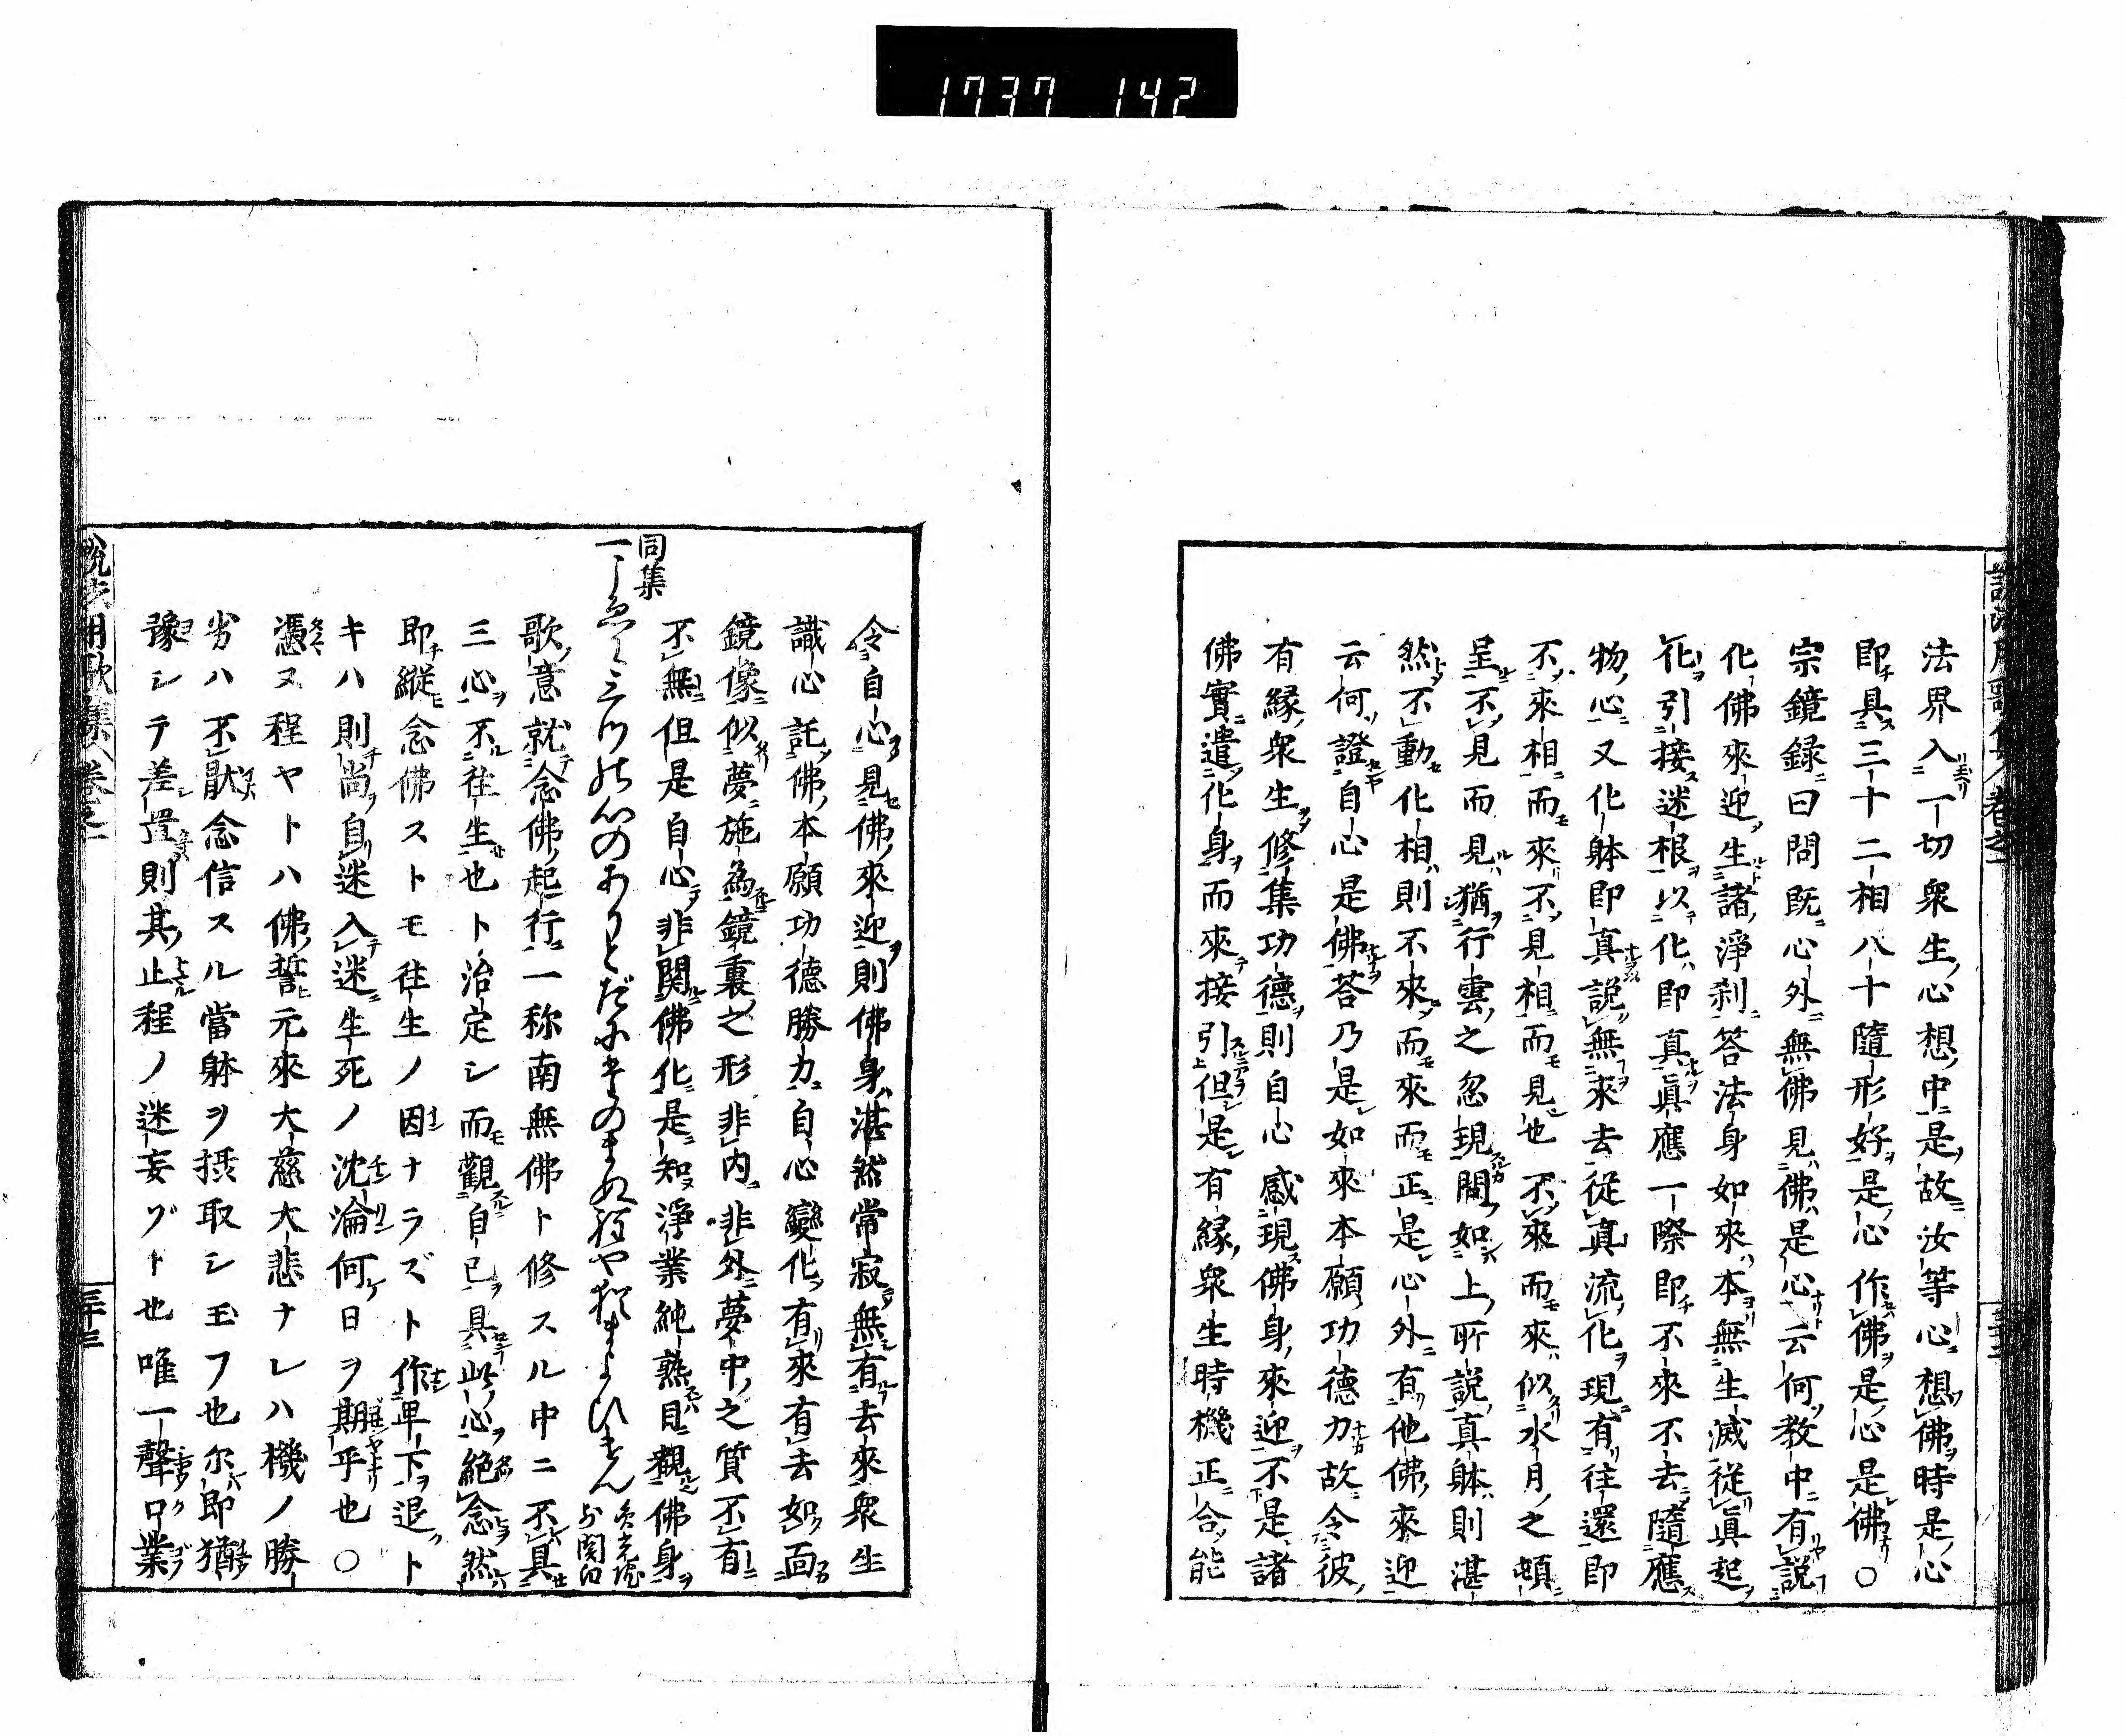 1737 142
法界入一切衆生心想中是故汝等心想佛時是心
即具三十二相八十隨形好是心作佛是心是佛〇
宗鏡録曰問既心外無佛見佛是心云何教中有説
化佛來迎生諸淨刹荅法身如來本無生滅從眞起
化引接迷根以化即真眞應一際即不來不去隨應
物心又化躰即真説無來去從真流化現有往還即
不來相而來不見相而見也不來而來似水月之頓
呈不見而見猶行雲之忽現聞如上所説真躰則湛
然不動化相則不來而來而正是心外有他佛來迎
云何證自心是佛荅乃是如來本願功德力故令彼
有縁衆生修集功德則自心感現佛身來迎不是諸
佛實遣化身而來接引但是有縁衆生時機正合能
令自心見佛來迎則佛身湛然常寂無有去來衆生
識心託佛本願功德勝力自心變化有來有去如面
鏡像似夢施為鏡裏之形非内非外夢中之質不有
不無但是自心非関佛化是知淨業純熟目觀佛身
同集
歌意就念佛起行一称南無佛ト修スル中ニ不具
三心不往生也ト治定シ而觀自已具此心絶念然
即縱念佛ストモ往生ノ因ナラズト作卑下退ト
キハ則尚自迷入迷生死ノ沈淪何日ヲ期乎也〇
憑ヌ程ヤトハ佛誓元來大慈大悲ナレハ機ノ勝
劣ハ不猒念信スル當躰ヲ摂取シ玉フ也尓即猶
豫シテ差置則其止程ノ迷妄ゾト也唯一聲口業